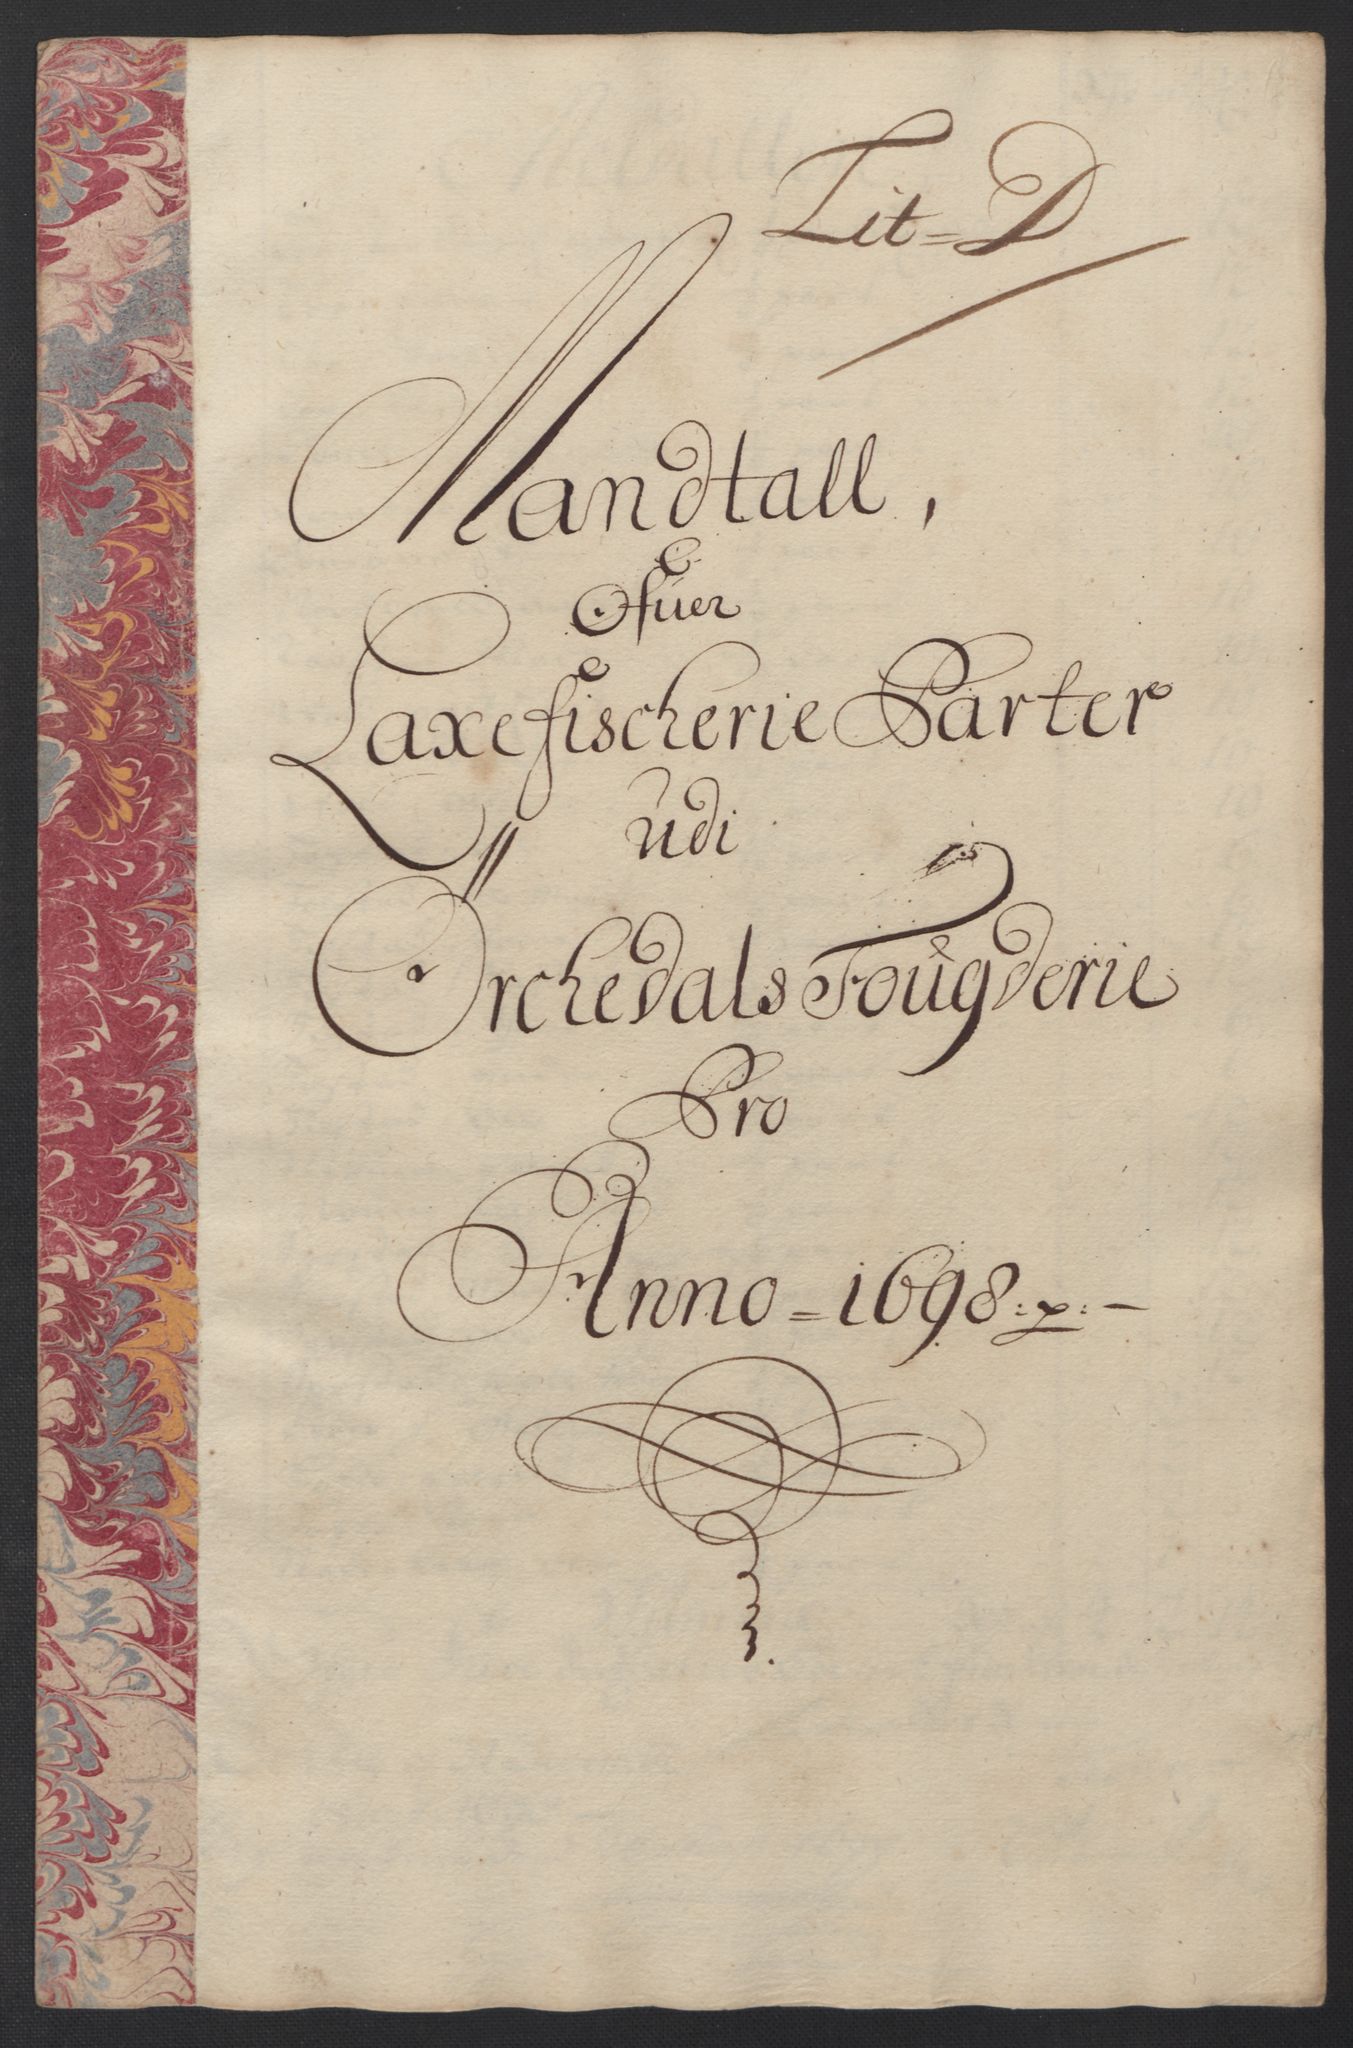 Lit=D
Mandtall,
Ofuer
Laxefischerie Parter
udi
Örchedals Fougderie
Pro
Anno=1698: